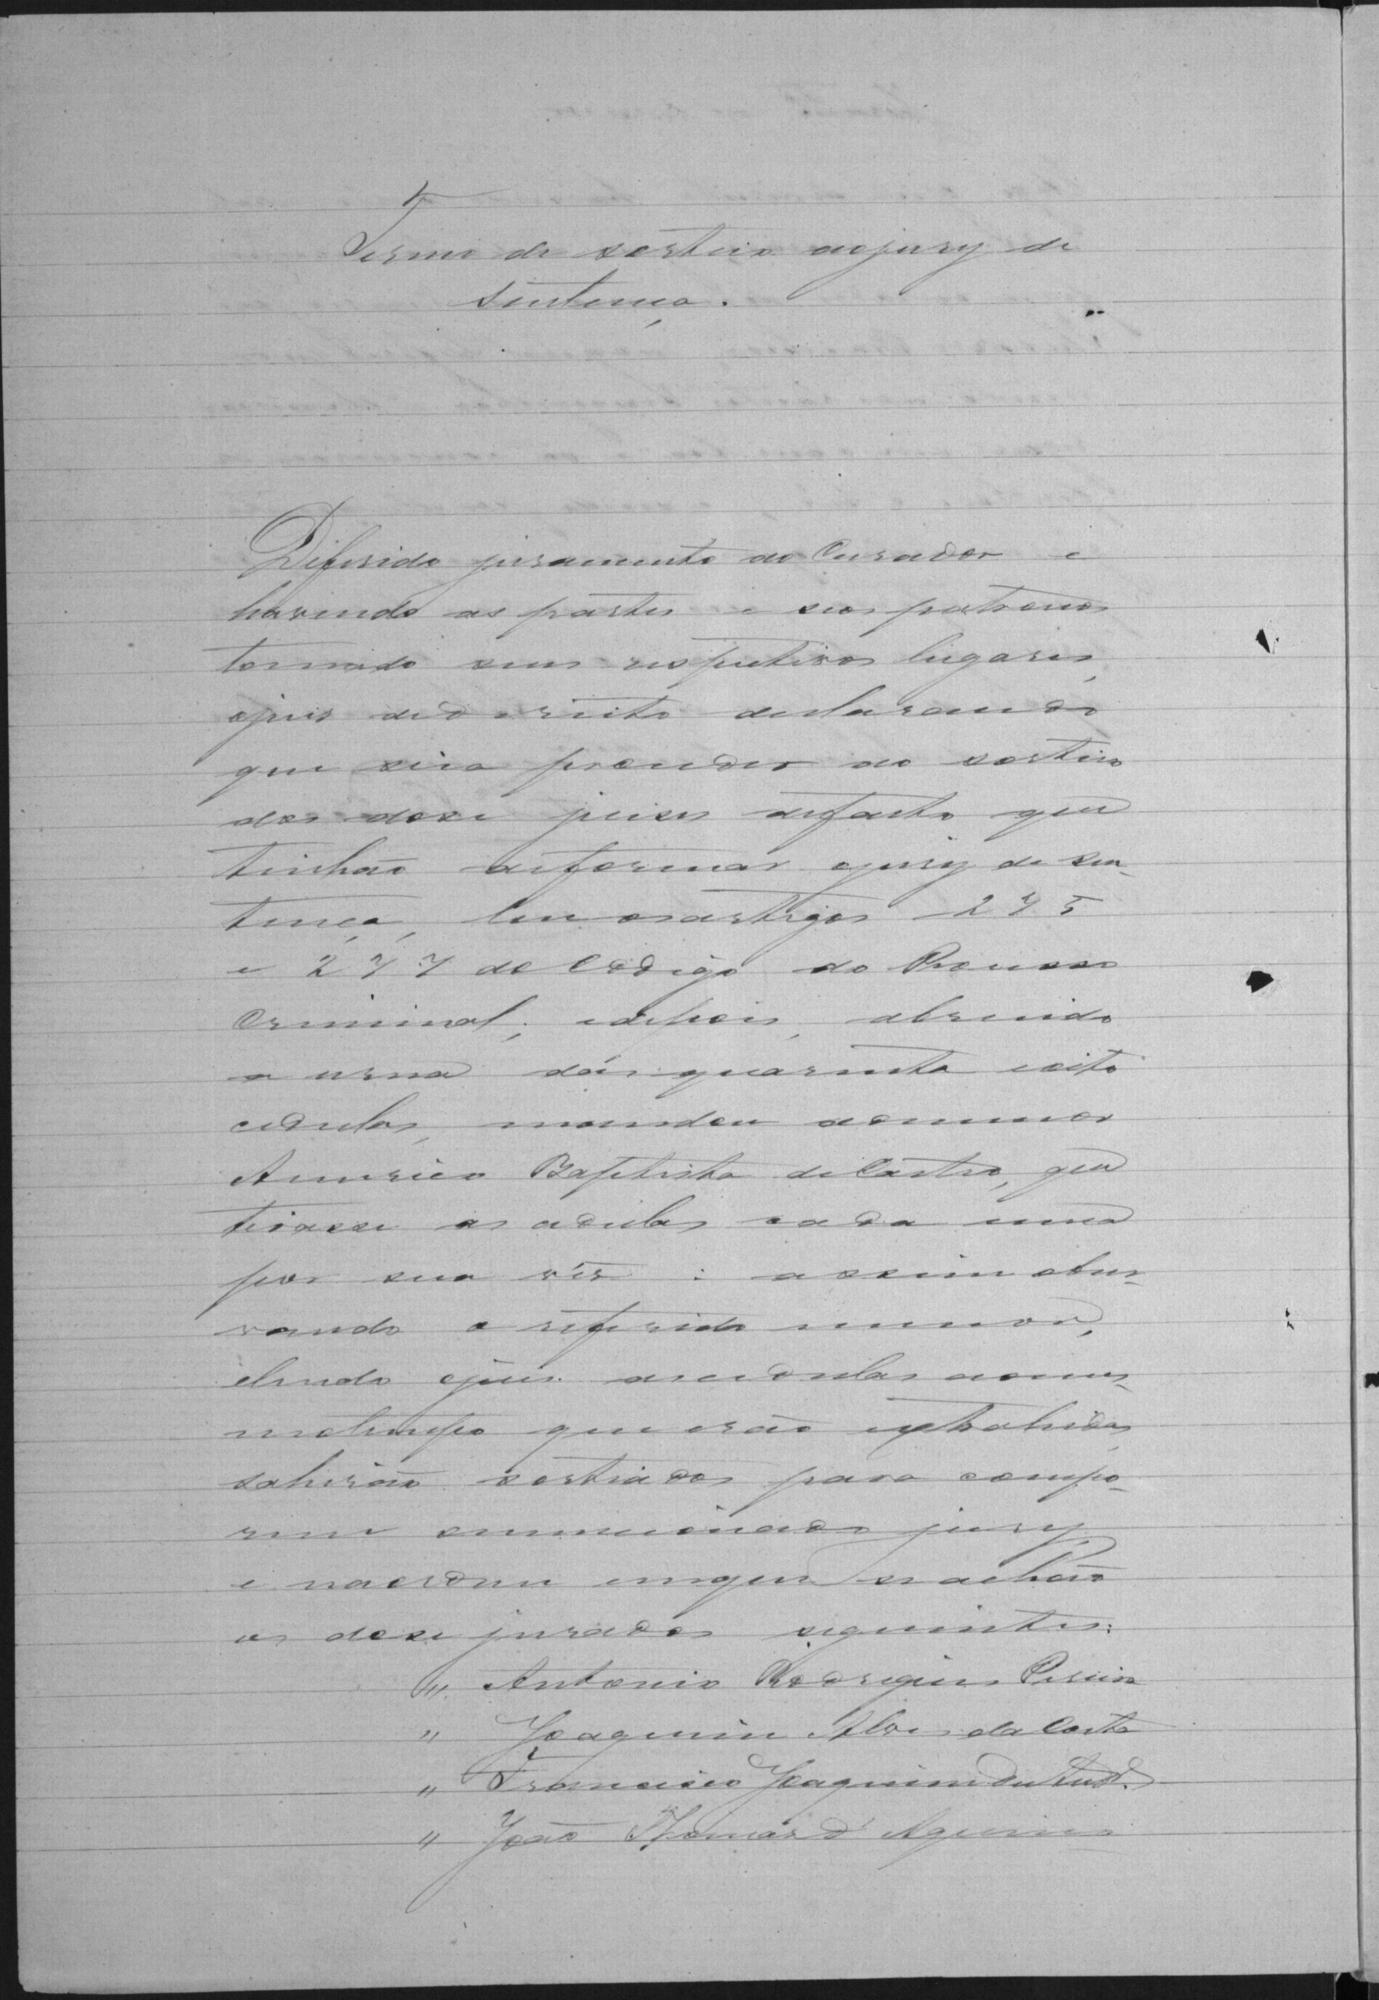 Termo de sorteio do jury de
sentença.
Diferido juramento ao Curador e
havendo as partes e seos patronos
tomado seus respectivos lugares,
o juis de direito declarando
que se ia proceder ao sorteio
dos dose juises de facto que
tinhão de formar o jury de sen-
tença, leu os artigos 275
e 277 do Codigo do Processo
Criminal; e depois, abrindo
a urna das quarenta e oito
cedulas, mandou ao menor
Americo Baptista de Castro, que
tirasse as cedulas cada uma
por sua vês: assim obser-
vando o referido menor,
e lendo o juis as cedulas ao mes-
mo tempo que erão extrahidas,
sahirão sorteados para compo-
rem o mencionado jury
e na ordem em que se achão
os dose jurados seguintes:
" Antonio Rodrigues Pereira
" Joaquim Alves da Costa
" Francisco Joaquim
" João Thomás d'Aquino